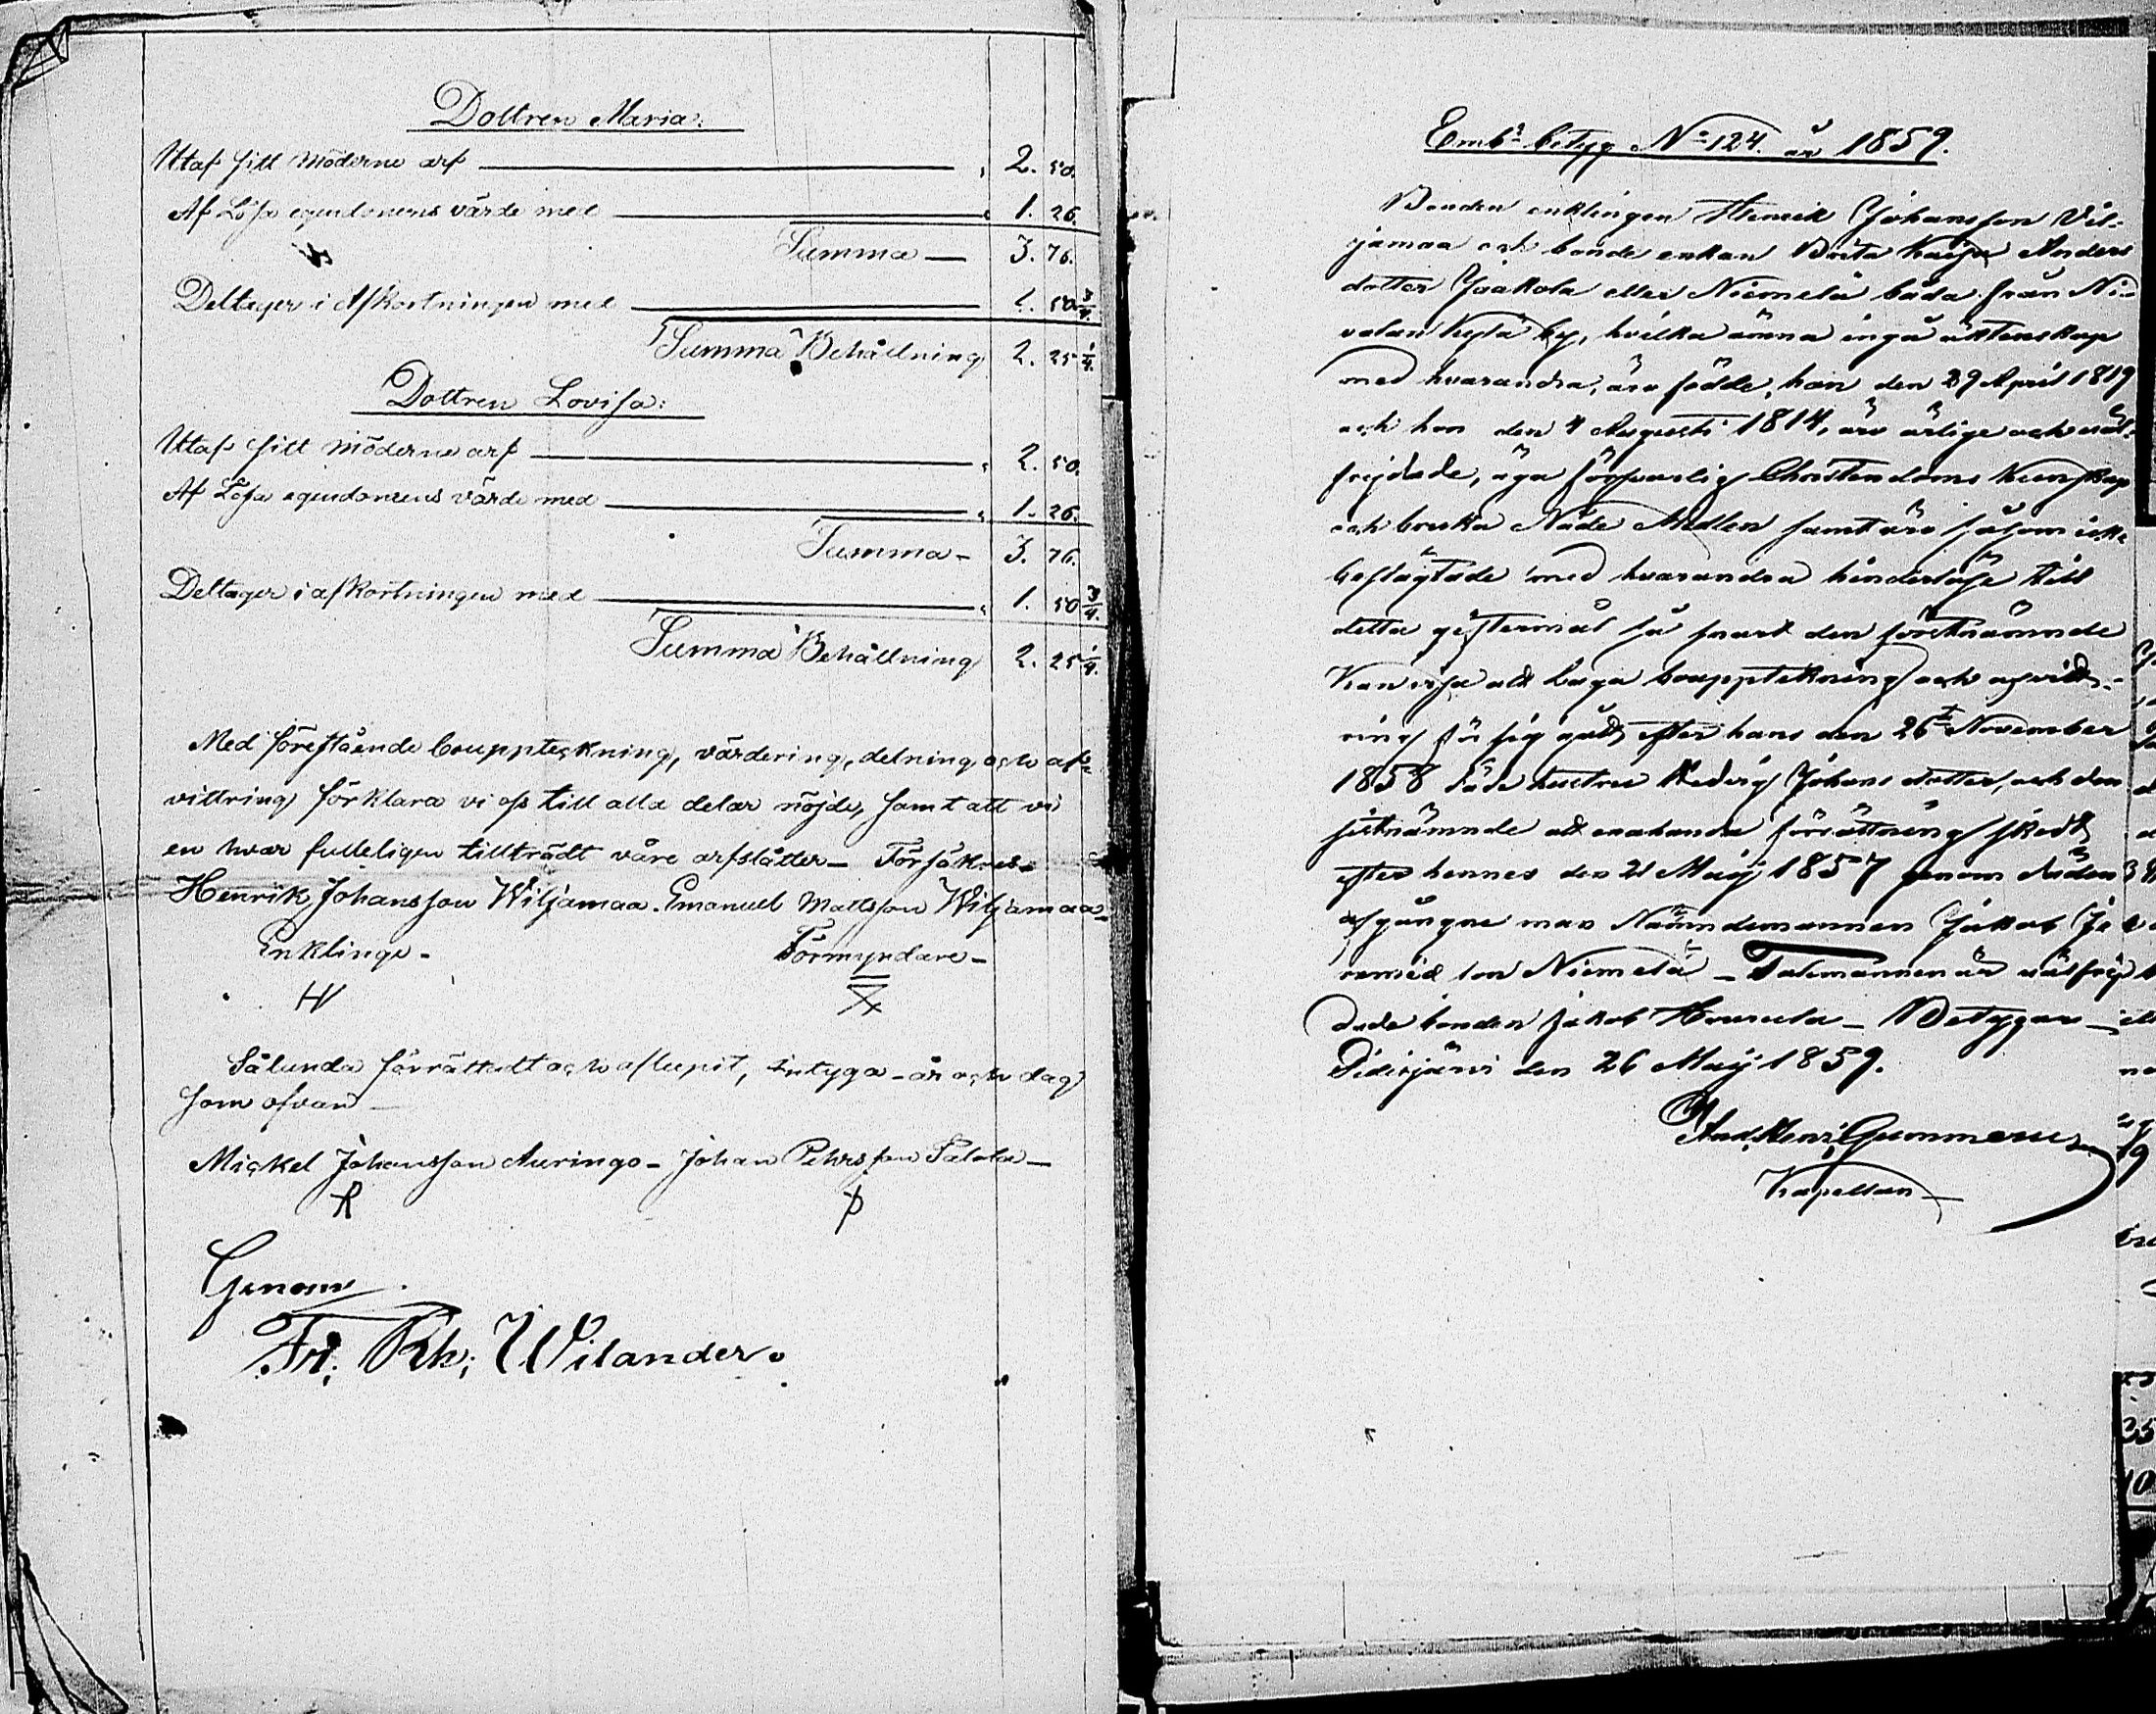 Dottren Maria:
Utaf sitt möderne arf — „ 2. 50.
Af Lösa egendomens värde med — „ 1. 26.
Summa — 3. 76.
Deltager i Afkortningen med — 1. 50 3/4.
Summa Behållning 2. 25 1/4.
Dottren Lovisa:
Utaf sitt möderne arf — „ 2. 50.
Af Lösa egendomens värde med — „ 1. 26.
Summa — 3. 76.
Deltager i afkortningen med — „ 1. 50 3/4.
Summa Behållning 2. 25 1/4.
Med förestående bouppteckning, värdering, delning och af-
vittring förklara vi oss till alla delar nöjde, samt att vi
en hvar fulleligen tillträdt våre arfslåtter — Försäkres.
Henrik Johansson Wiljamaa. Emanuel Mattsson Wiljamaa
Enklinge — Förmyndare —
Sålunda förrättadt och aflupit, intyga — år och dag
som ofvan —
Mickel Johansson Auringo — Johan Pehrsson Salola —
Genom
Fr. Rh; Wilander.
Embs betyg No 124. år 1859.
Bonden enklingen Henrik Johansson Vil-
jamaa och bonde enkan Brita Kaisa Anders
dotter Jaakola eller Niemelä båda från Ni-
valan kylä by, hvilka ämna ingå äktenskap
med hvarandra, äro födde, han den 29 April 1819
och hon den 4 Augusti 1814, äro ärlige och väl-
frejdade, äga försvarlig Christendoms kunskap
och bruka Nåde Medlen samt äro såsom icke
beslägtade med hvarandra hinderlöse till
detta giftermål så snart den förstnämnde
kan visa att laga bouppteckning och afvitt-
ring för sig gått efter hans den 26te November
1858 döde hustru Hedvig Johans dotter, och den
sistnämnde att enahanda förrättning skedt
efter hennes den 21 Maij 1857 genom döden
afgångne man Nämndemannen Jakob Je
remiæ son Niemelä — Talemannen är välfrej
dade bonden Jakob Housula — Betygar —
Pidisjärvi den 26 Maij 1859.
And. Henr. Gummerus
Kapellan